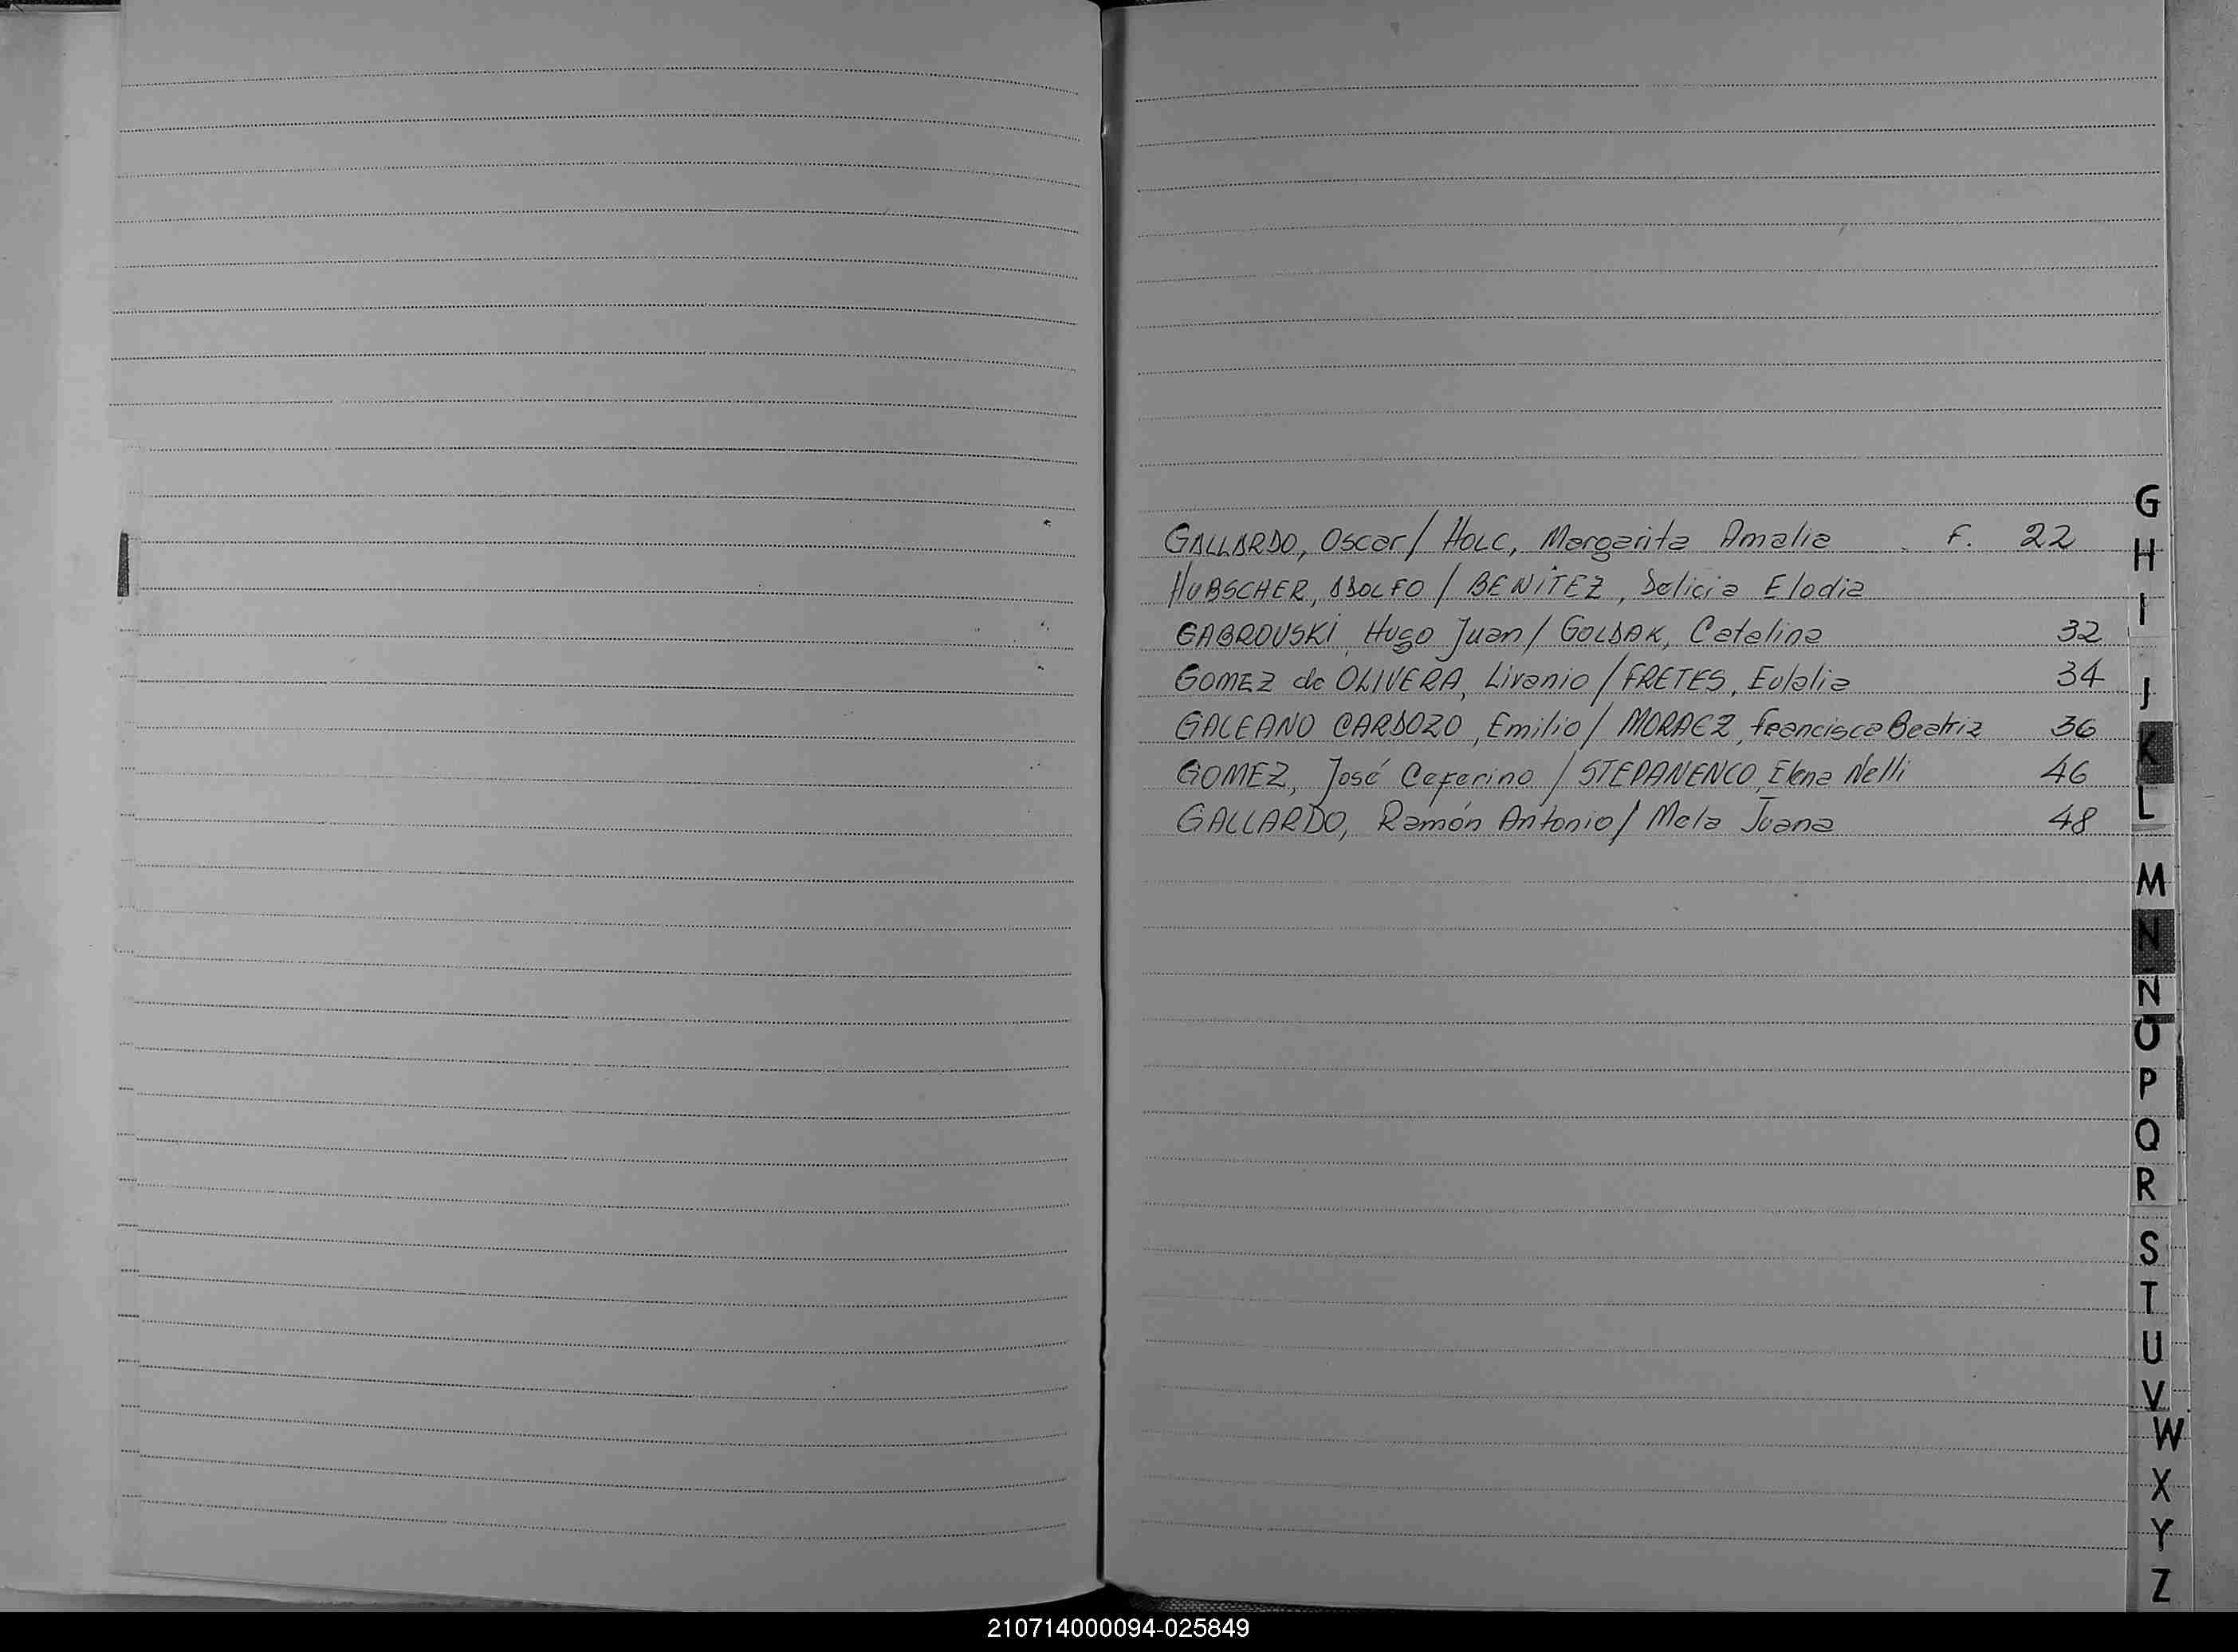 GALLARDO, Oscar / HOLC, Margarita Amalia . F. 22
HUBSCHER, ADOLFO / BENITEZ, Delicia Elodia
GABROUSKI, Hugo Juan / GOLDAK, Catalina 32
GOMEZ de OLIVERA, Livanio / FRETES, Eulalia 34
GALEANO CARDOZO, Emilio / MORAEZ, francisca Beatriz 36
GOMEZ, José Ceferino / STEPANENCO, Elena Nelli 46
GALLARDO, Ramón Antonio / Mela Juana 48
G
H
I
J
K
L
M
N
Ñ
O
P
Q
R
S
T
U
V
W
X
Y
Z
210714000094-025849